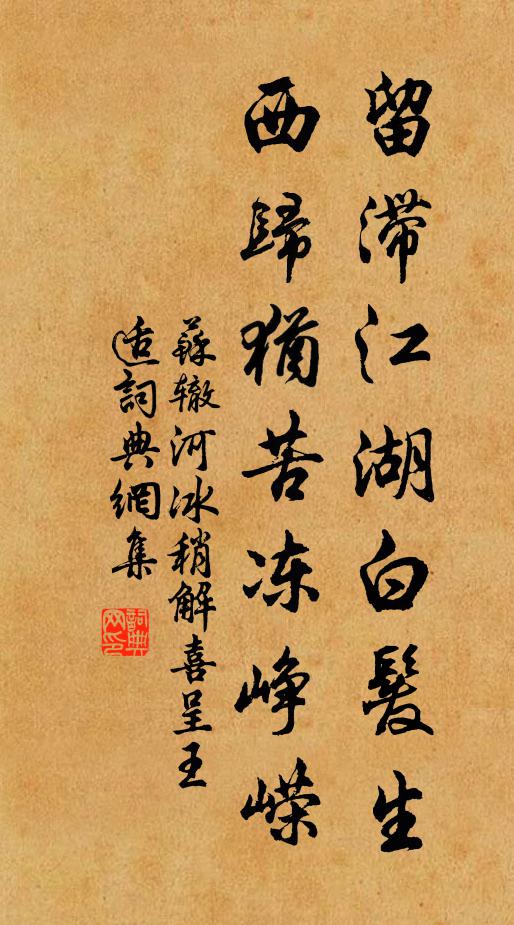 留滞江湖白髮生
西歸猶苦冻峥嵘
蘇辙河冰稍解喜呈王
适詞典網集
詞典网印